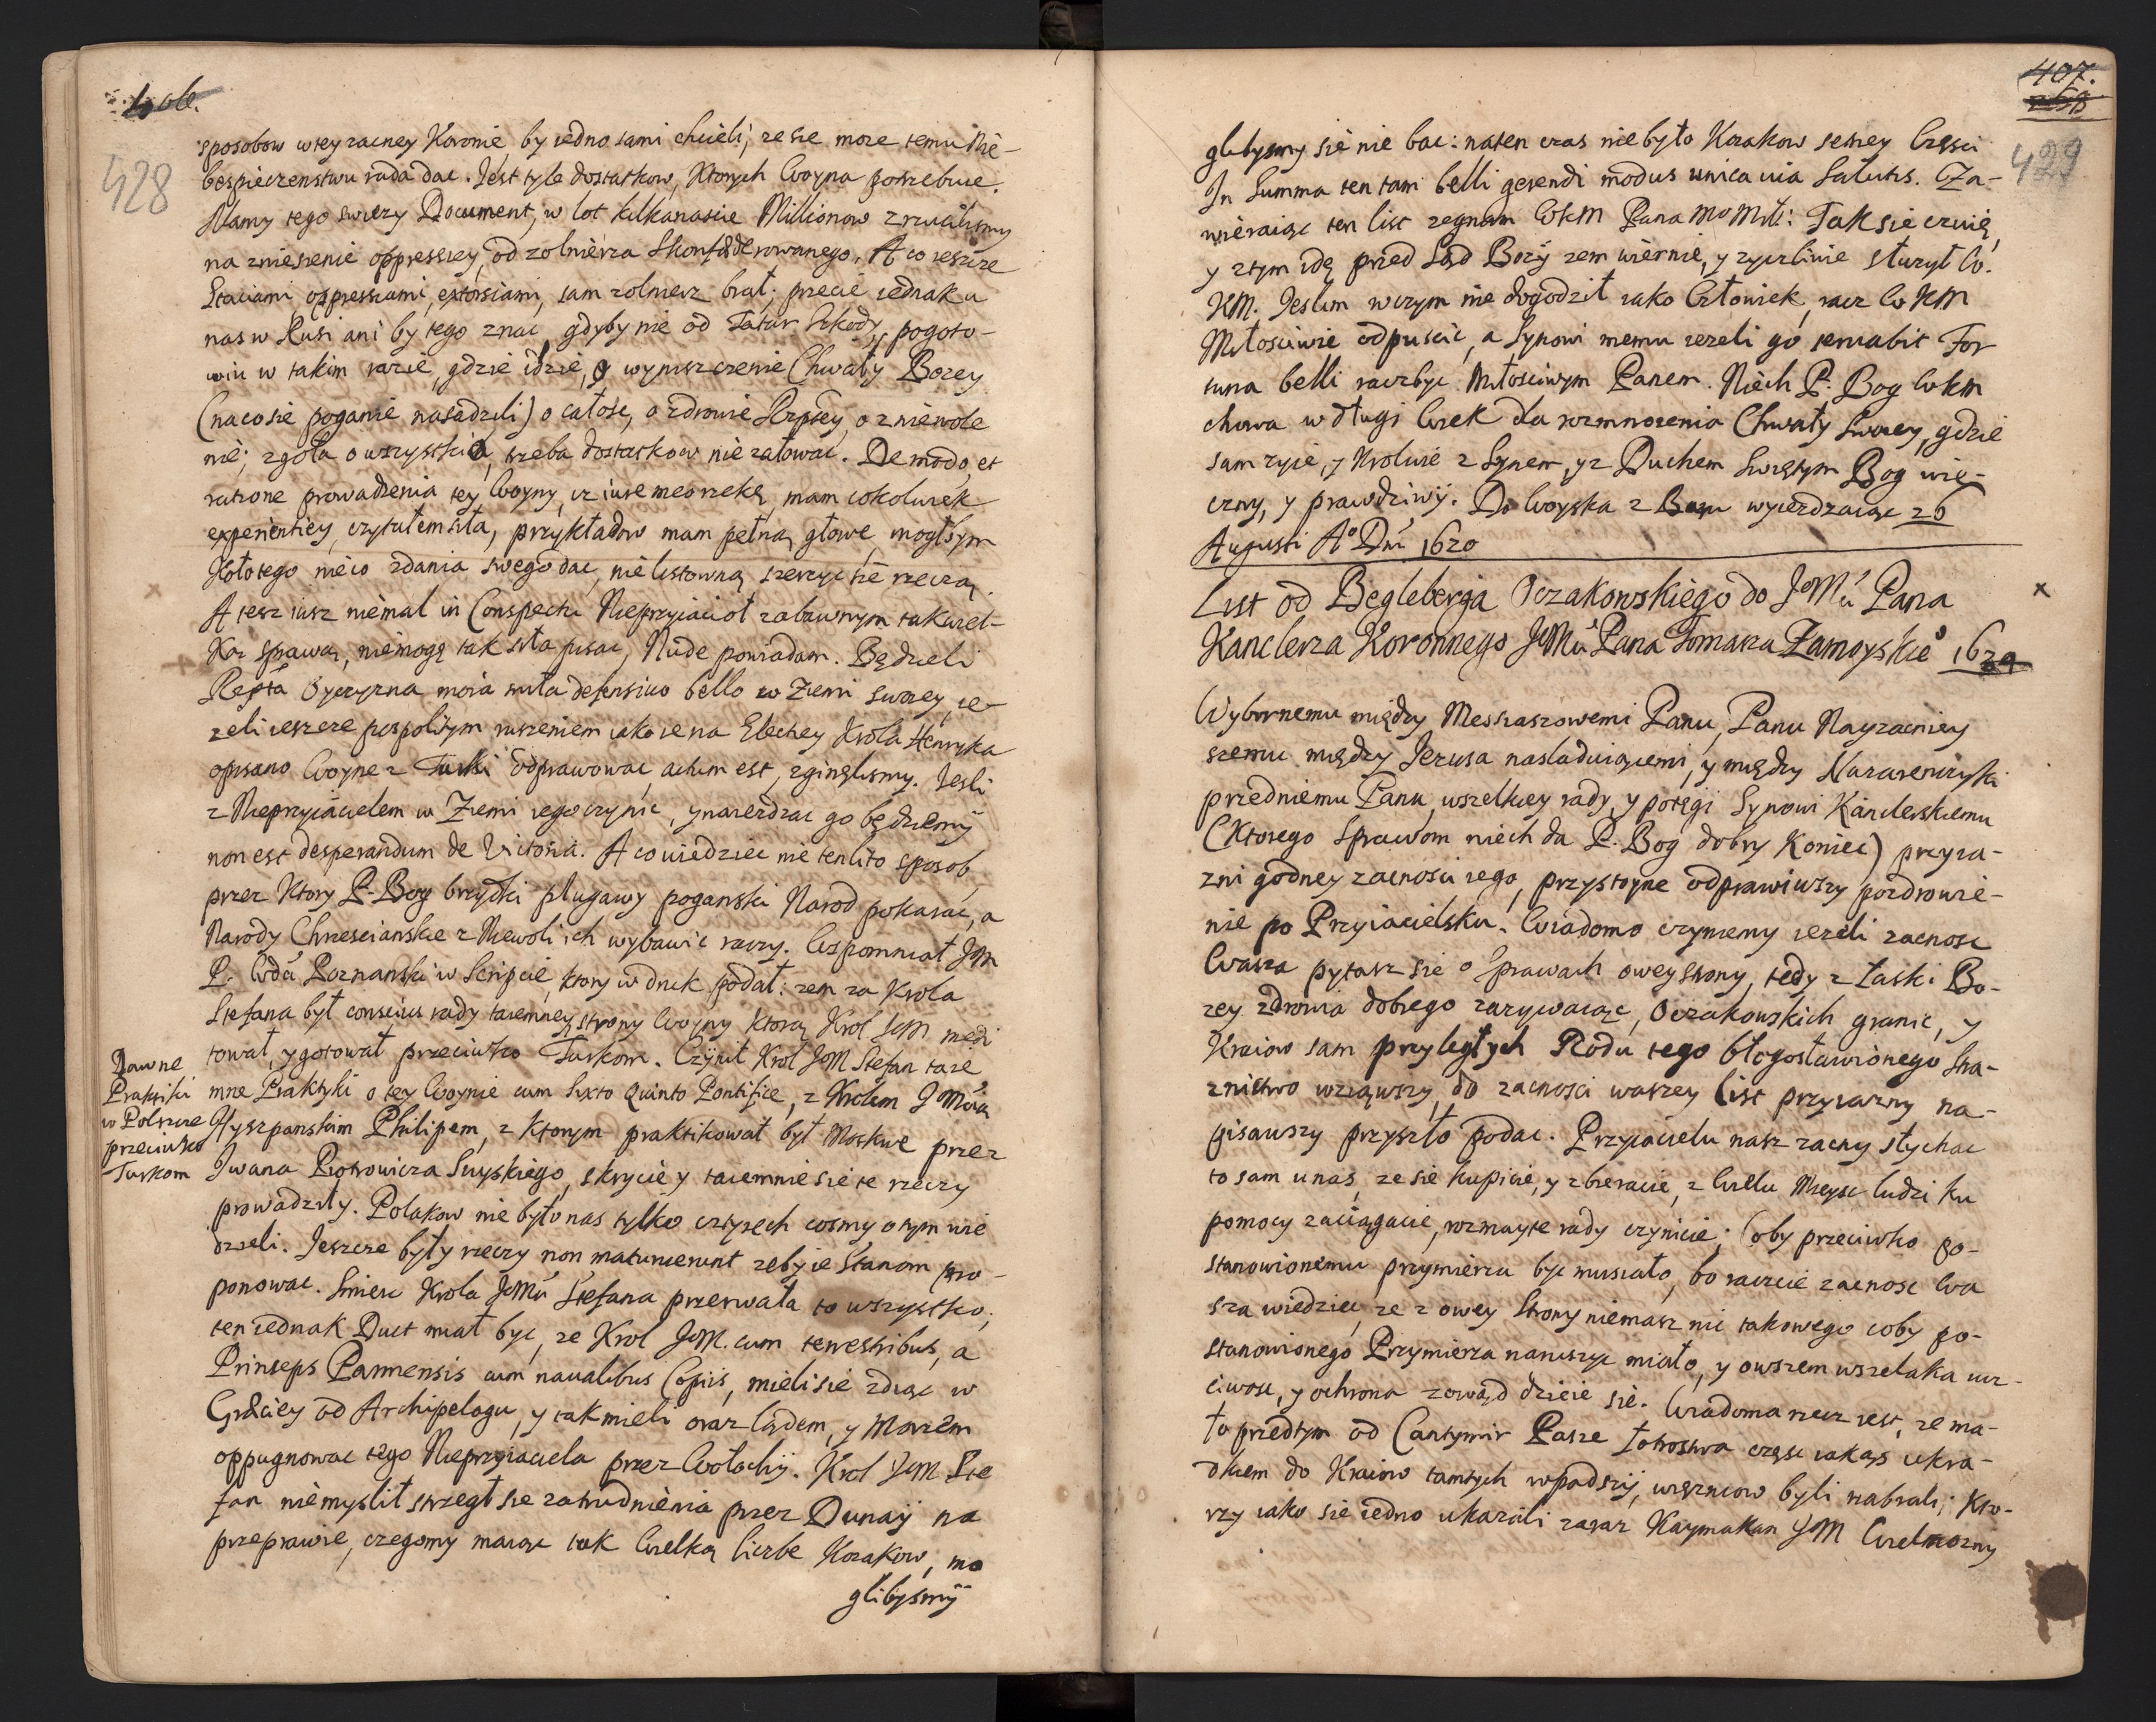 428
sposobow w tey zacney Koronie by iedno sami chcieli, ze sie moze temu Nie-
bespieczenstwu rada dac. Jest tyle dostatkow, Ktorych Woyna potrzebuie.
Mamy tego swiezy Document, w lot kilkanascie Millionow zrzucilismy
na zniesienie oppressiey, od zolnierza skonfæderowanego. A co ieszcze
Staciami, oppressiami, extorsiami, sam zolnierz brał; precie iednak u
nas w Rusi ani by tego znac, gdyby nie od Tatar Szkody, pogoto-
wiu w takim razie, gdzie idzie, o wyniszczenie Chwały Bozey
(na co sie poganie nasadzili) o całosc, o zdrowie Rzptey, o zniewole
nie; zgoła o wszystkio, trzeba dostatkow nie załowac. De modo, et
ratione prowadzenia tey Woyny, iz iure meo rzekę, mam cokolwiek
experientiey, czytałem siła, przykładow mam pełną głowę, mogłbym
Koło tego nieco zdania swego dac, nie listowną szerzyc sie rzeczą.
A tesz iusz niemal in Conspectu Nieprzyiacioł zabawnym tak wiel-
Ką sprawą, niemogę tak siła pisac, Nude powiadam. Będzieli
Rzpta Oyczyzna moia miła defensiuo bello w Ziemi swoiey, ie-
zeli ieszcze pospolitym ruszeniem iako ie na Electiey Krola Henryka
opisano Woyne z Turki odprawowac, actum est, zginęlismy. Jesli
z Nieprzyiacielem w Ziemi iego czynic, y naierdzac go będziemy
non est desperandum de Victoria. A co wiedziec nie ten li to sposob,
przez Ktory P. Bog brzydki plugawy poganski Narod pokarac, a
Narody Chrzescianskie z Niewoli ich wybawic raczy. Wspomniał JM
P. Wda Poznanski w Scripcie, ktory w druk podał: zem za Krola
Stefana był conscius rady taiemney z strony Woyny Ktorą Krol JeM medi
tował, y gotował przeciwko Turkom. Czynił Krol JeM Stefan taie
mne Praktyki o tey Woynie cum Sixto Quinto Pontifice, z Krolem JeMcią
Hyszpanskim Philipem, z Ktorym praktikował był Moskwe przez
Iwana Piotrowicza Suyskiego, skrycie y taiemnie sie te rzeczy
prowadziły. Polakow nie było nas tylko cztyrech cosmy o tym wie
dzieli. Jeszcze były rzeczy non maturuerunt zeby ie Stanom pro-
ponowac. Smierc Krola JeMci Stefana przerwała to wszystko;
ten iednak Duct miał byc, ze Krol JeM. cum terrestribus, a
Princeps Parmensis cum naualibus Copiis, mieli sie zdiąc w
Græciey od Archipelagu, y tak mieli oraz lądem, y Morzem
oppugnowac tego Nieprzyiaciela przez Wołochy. Krol JeM Ste
fan niemyslił strzegł sie zatrudnienia przez Dunaiy na
przeprawie, czegomy maiąc tak Wielką liczbe Kozakow, mo
glibysmy
Dawne
Praktiki
w Polszcze
przeciwko
Turkom
407.
429
glibysmy sie nie bac: na ten czas nie było Kozakow setney Części
In Summa ten tam belli gerendi modus unica uia Salutis. Za-
wieraiąc ten list zegnam WKM Pana Mo Miłł: Tak sie czuię,
y ztym idę przed Sąd Bozy zem wiernie, y zyczliwie służył W.
KM. Jeslim wczym nie dogodził iako Człowiek, racz WKM
Miłosciwie odpuscic, a Synowi memu iezeli go seruabit For
tuna belli racz byc Miłosciwym Panem. Niech P. Bog WKM
chowa w długi Wiek dla rozmnozenia Chwały Swoiey, gdzie
sam zyie, y Kroluie z Synem, y z Duchem Swiętym Bog wie-
czny, y prawdziwy. Do Woyska z Baru wyiezdzaiąc 26
Augusti Ao Dni 1620
List od Begleberga Oczakowskiego do JeMci Pana
Kanclerza Koronnego JeMci Pana Tomasza Zamoyskie° 1629
Wybornemu między Messiaszowemi Panu, Panu Nayzacniey
szemu między Jezusa nasladuiącemi, y między Nazarenczyki
przedniemu Panu, wszelkiey rady, y potęgi Synowi Kanclerskiemu
(Ktorego Sprawom niech da P. Bog dobry Koniec) przyia-
zni godney zacnosci iego, przystoyne odprawiwszy pozdrowie-
nie po Przyiacielsku. Wiadomo czyniemy iezeli zacnosc
Wasza pytasz sie o Sprawach owey strony, tedy z Łaski Bo-
zey zdrowia dobrego zazywaiąc, Oczakowskich granic, y
Kraiow sam przyległych Rodu tego błogosławionego Stra-
znictwo wziąwszy, do zacnosci waszey list przyiazny na-
pisawszy przyszło podac. Przyiacielu nasz zacny słychac
to sam u nas, ze sie kupicie, y zbieracie, z Wielu Mieysc ludzi ku
pomocy zaciągacie, rozmayte rady czynicie; Coby przeciwko po-
stanowionemu przymierzu byc musiało, bo raczcie zacnosc Wa
sza wiedziec, ze z owey Strony niemasz nic takowego coby po-
stanowionego Przymierza naruszyc miało, y owszem wszelaka ucz-
ciwosc, y ochrona zowąd dzieie sie. Wiadoma rzecz iest, ze ma-
ło przedtym od Cantymir Basze łotrostwa częsc iakąs ukra-
dkiem do Kraiow tamtych wpadszy, więzniow byli nabrali; Kto-
rzy iako sie iedno ukazali zaraz Kaymakan JeM Wielmozny